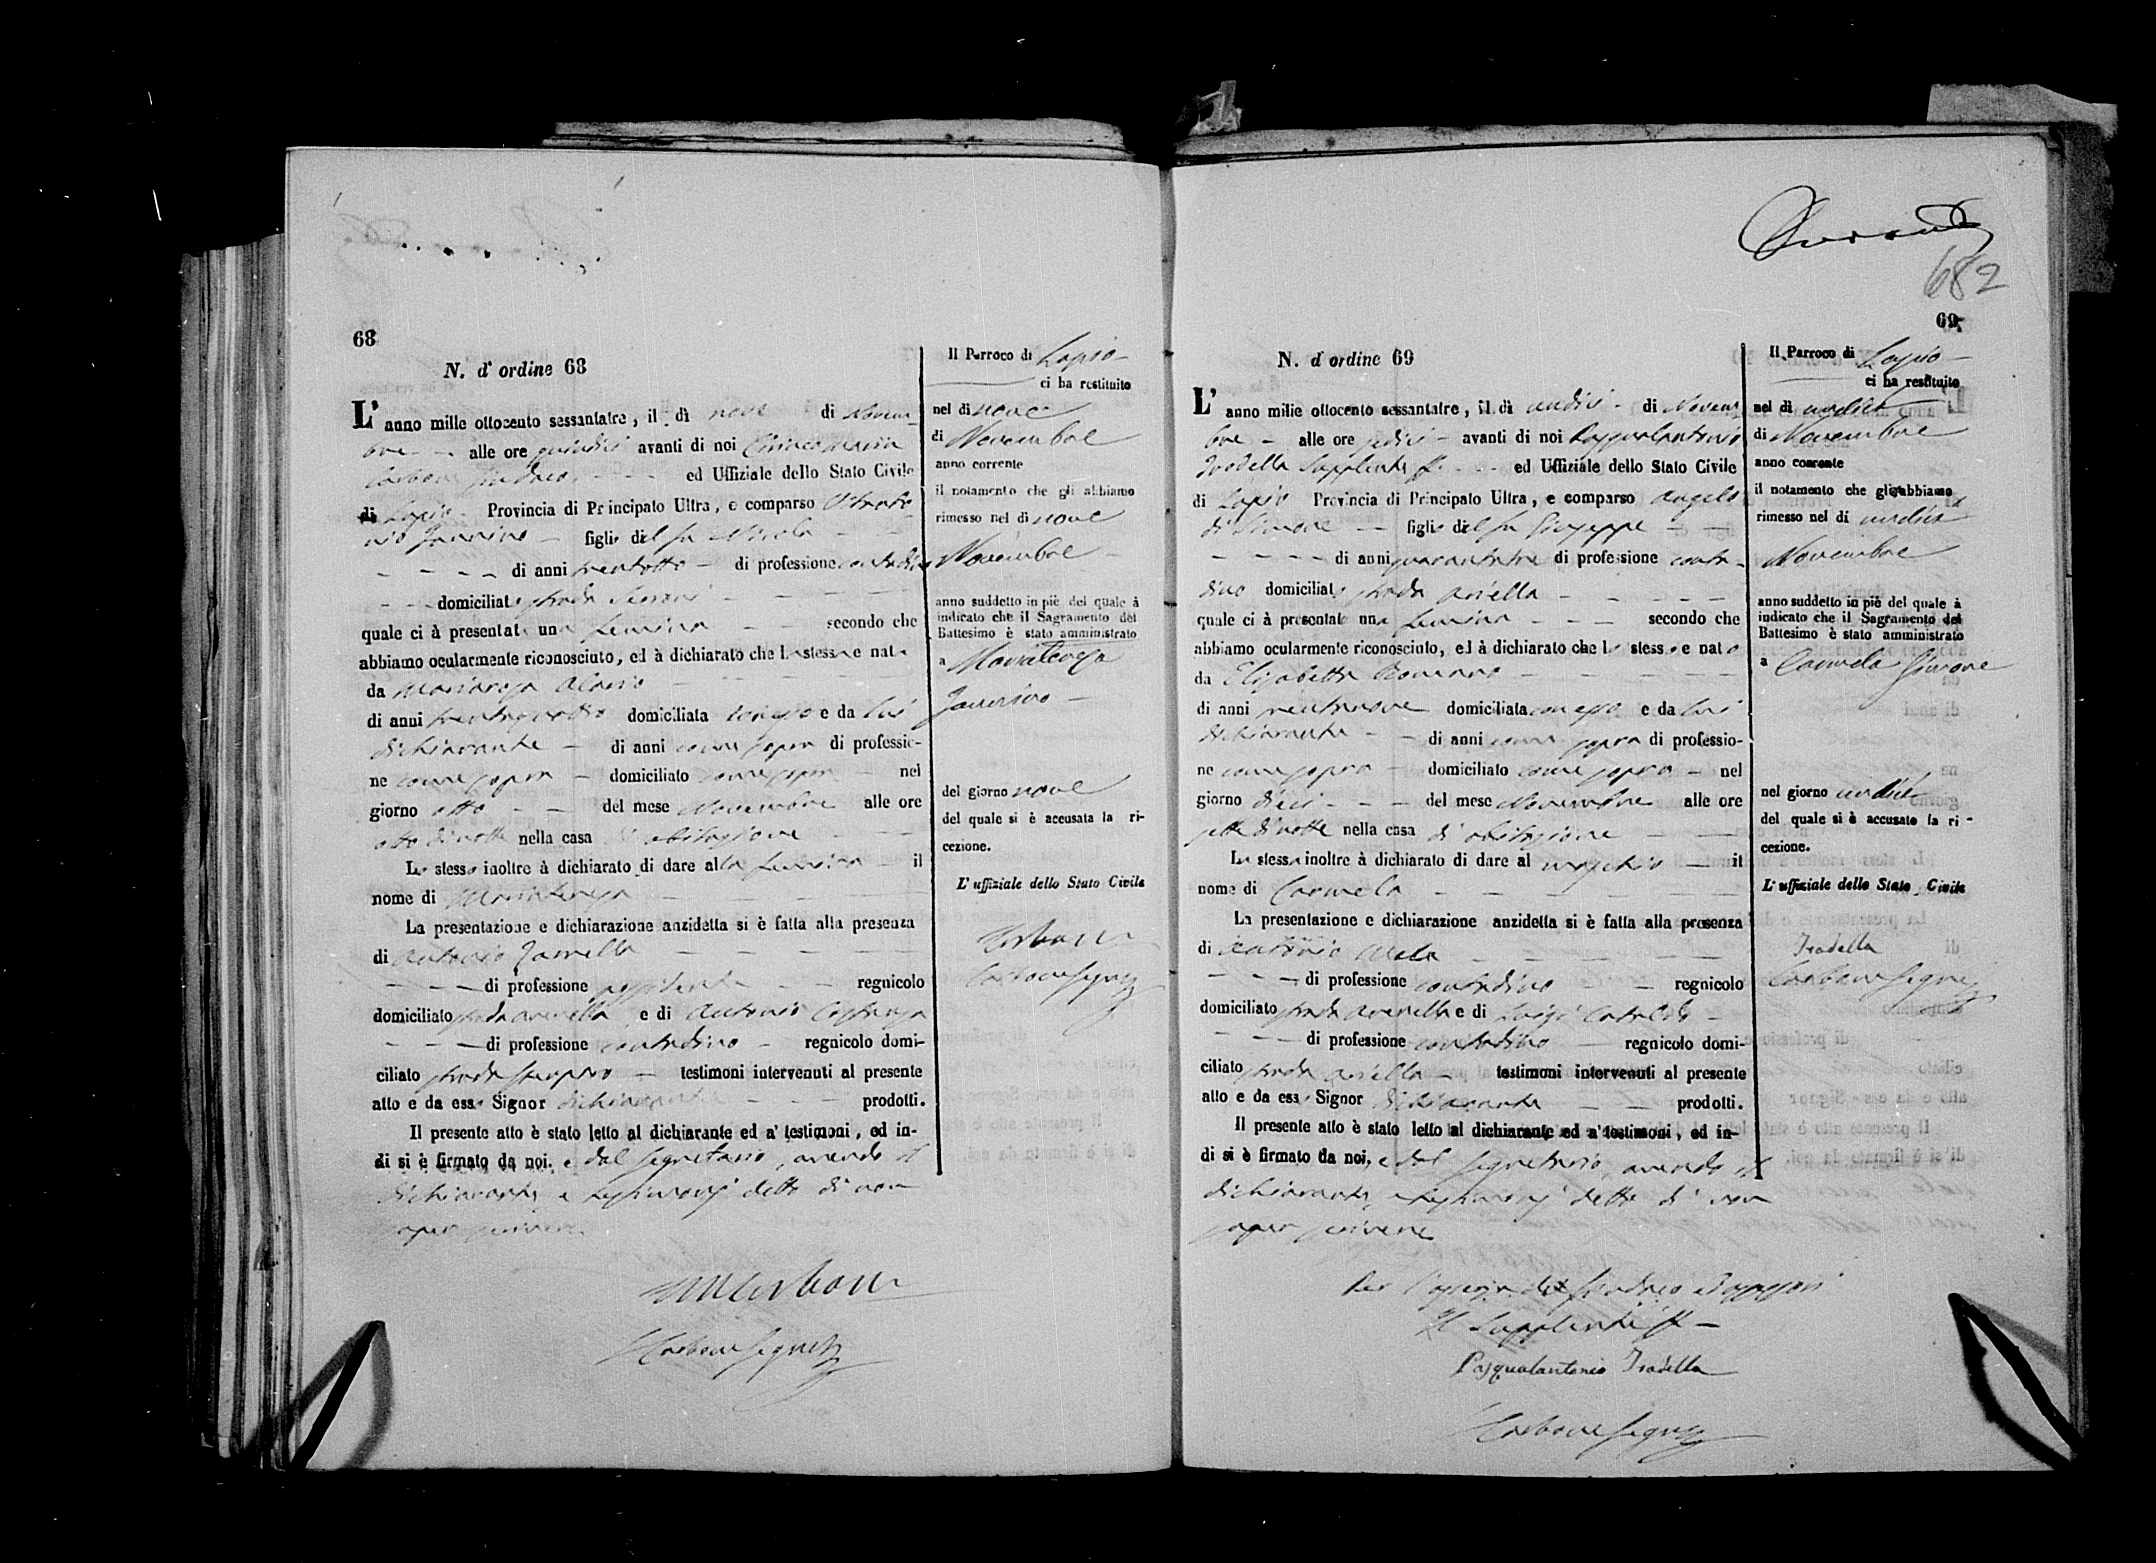 68
N. d' ordine 68
L' anno mille ottocento sessantatre, il dì nove di Novem
bre alle ore quindici avanti di noi Ciriaco Maria
Carbone Sindaco ed Uffiziale dello Stato Civile
di Lapio Provincia di Principato Ultra, e comparso
figlio del fu Nicola
di anni trentotto di professione contadino
domiciliato strada
quale ci à presentata una femina secondo che
abbiamo ocularmente riconosciuto, ed à dichiarato che la stessa e nata
da Mariarosa
di anni trentaquattro domiciliata con esso e da lui
dichiarante di anni come sopra di professio-
ne come sopra domiciliato come sopra nel
giorno otto del mese Novembre alle ore
otto di notte nella casa di abitazione
Lo stesso inoltre à dichiarato di dare alla femina il
nome di Mariateresa
La presentazione e dichiarazione anzidetta si è fatta alla presenza
di Antonio
di professione regnicolo
domiciliato strada arenella e di Antonio
di professione contadino regnicolo domi-
ciliato strada testimoni intervenuti al presente
atto e da esso Signor dichiarante prodotti.
Il presente atto è stato letto al dichiarante ed a' testimoni, ed in-
di si è firmato da noi, e dal segretario, avendo il
dichiarante, e testimonj detto di non
saper scrivere
Carbone
Carbone Segret
Il Parroco di Lapio
ci ha restituito
nel dì nove
di Novembre
anno corrente
il notamento che gli abbiamo
rimesso nel dì nove
Novembre
anno suddetto in piè del quale à
indicato che il Sagramento del
Battesimo è stato amministrato
a Mariateresa
del giorno nove
del quale si è accusata la ri-
cezione.
L' uffiziale dello Stato Civile
Carbone
Carbone Segret
682
69
N. d' ordine 69
L' anno mille ottocento sessantatre, il dì undici di Novem
bre alle ore sedici avanti di noi Pasqualantonio
Iradella Supplente ff. ed Uffiziale dello Stato Civile
di Lapio Provincia di Principato Ultra, e comparso Angelo
di Simone figlio del fu Giuseppe
di anni quarantatre di professione conta-
dino domiciliato strada ariella
quale ci à presentato una femina secondo che
abbiamo ocularmente riconosciuto, ed à dichiarato che lo stesso e nato
da Elisabetta Romano
di anni trentanove domiciliata con esso e da lui
dichiarante di anni come sopra di professio-
ne come sopra domiciliato come sopra nel
giorno dieci del mese Novembre alle ore
sette di notte nella casa d' abitazione
La stessa inoltre à dichiarato di dare al maschio il
nome di Carmela
La presentazione e dichiarazione anzidetta si è fatta alla presenza
di Antonio Mele
di professione contadino regnicolo
domiciliato strada arenella e di Luigi Cataldo
di professione contadino regnicolo domi-
ciliato strada ariella testimoni intervenuti al presente
atto e da esso Signor dichiarante prodotti.
Il presente atto è stato letto al dichiarante ed a' testimoni, ed in-
di si è firmato da noi, e dal segretario, avendo il
dichiarante, e testimonj detto di non
saper scrivere
Per l'assenza del Sindaco ed assessori
Il Supplente ff
Pasqualantonio Iradella
Carbone Segret
Il Parroco di Lapio
ci ha restituito
nel dì undici
di Novembre
anno corrente
il notamento che gli abbiamo
rimesso nel dì undici
Novembre
anno suddetto in piè del quale à
indicato che il Sagramento del
Battesimo è stato amministrato
a Carmela Simone
nel giorno undici
del quale si è accusato la ri-
cezione.
L' uffiziale dello Stato Civile
Iradella
Carbone Segret